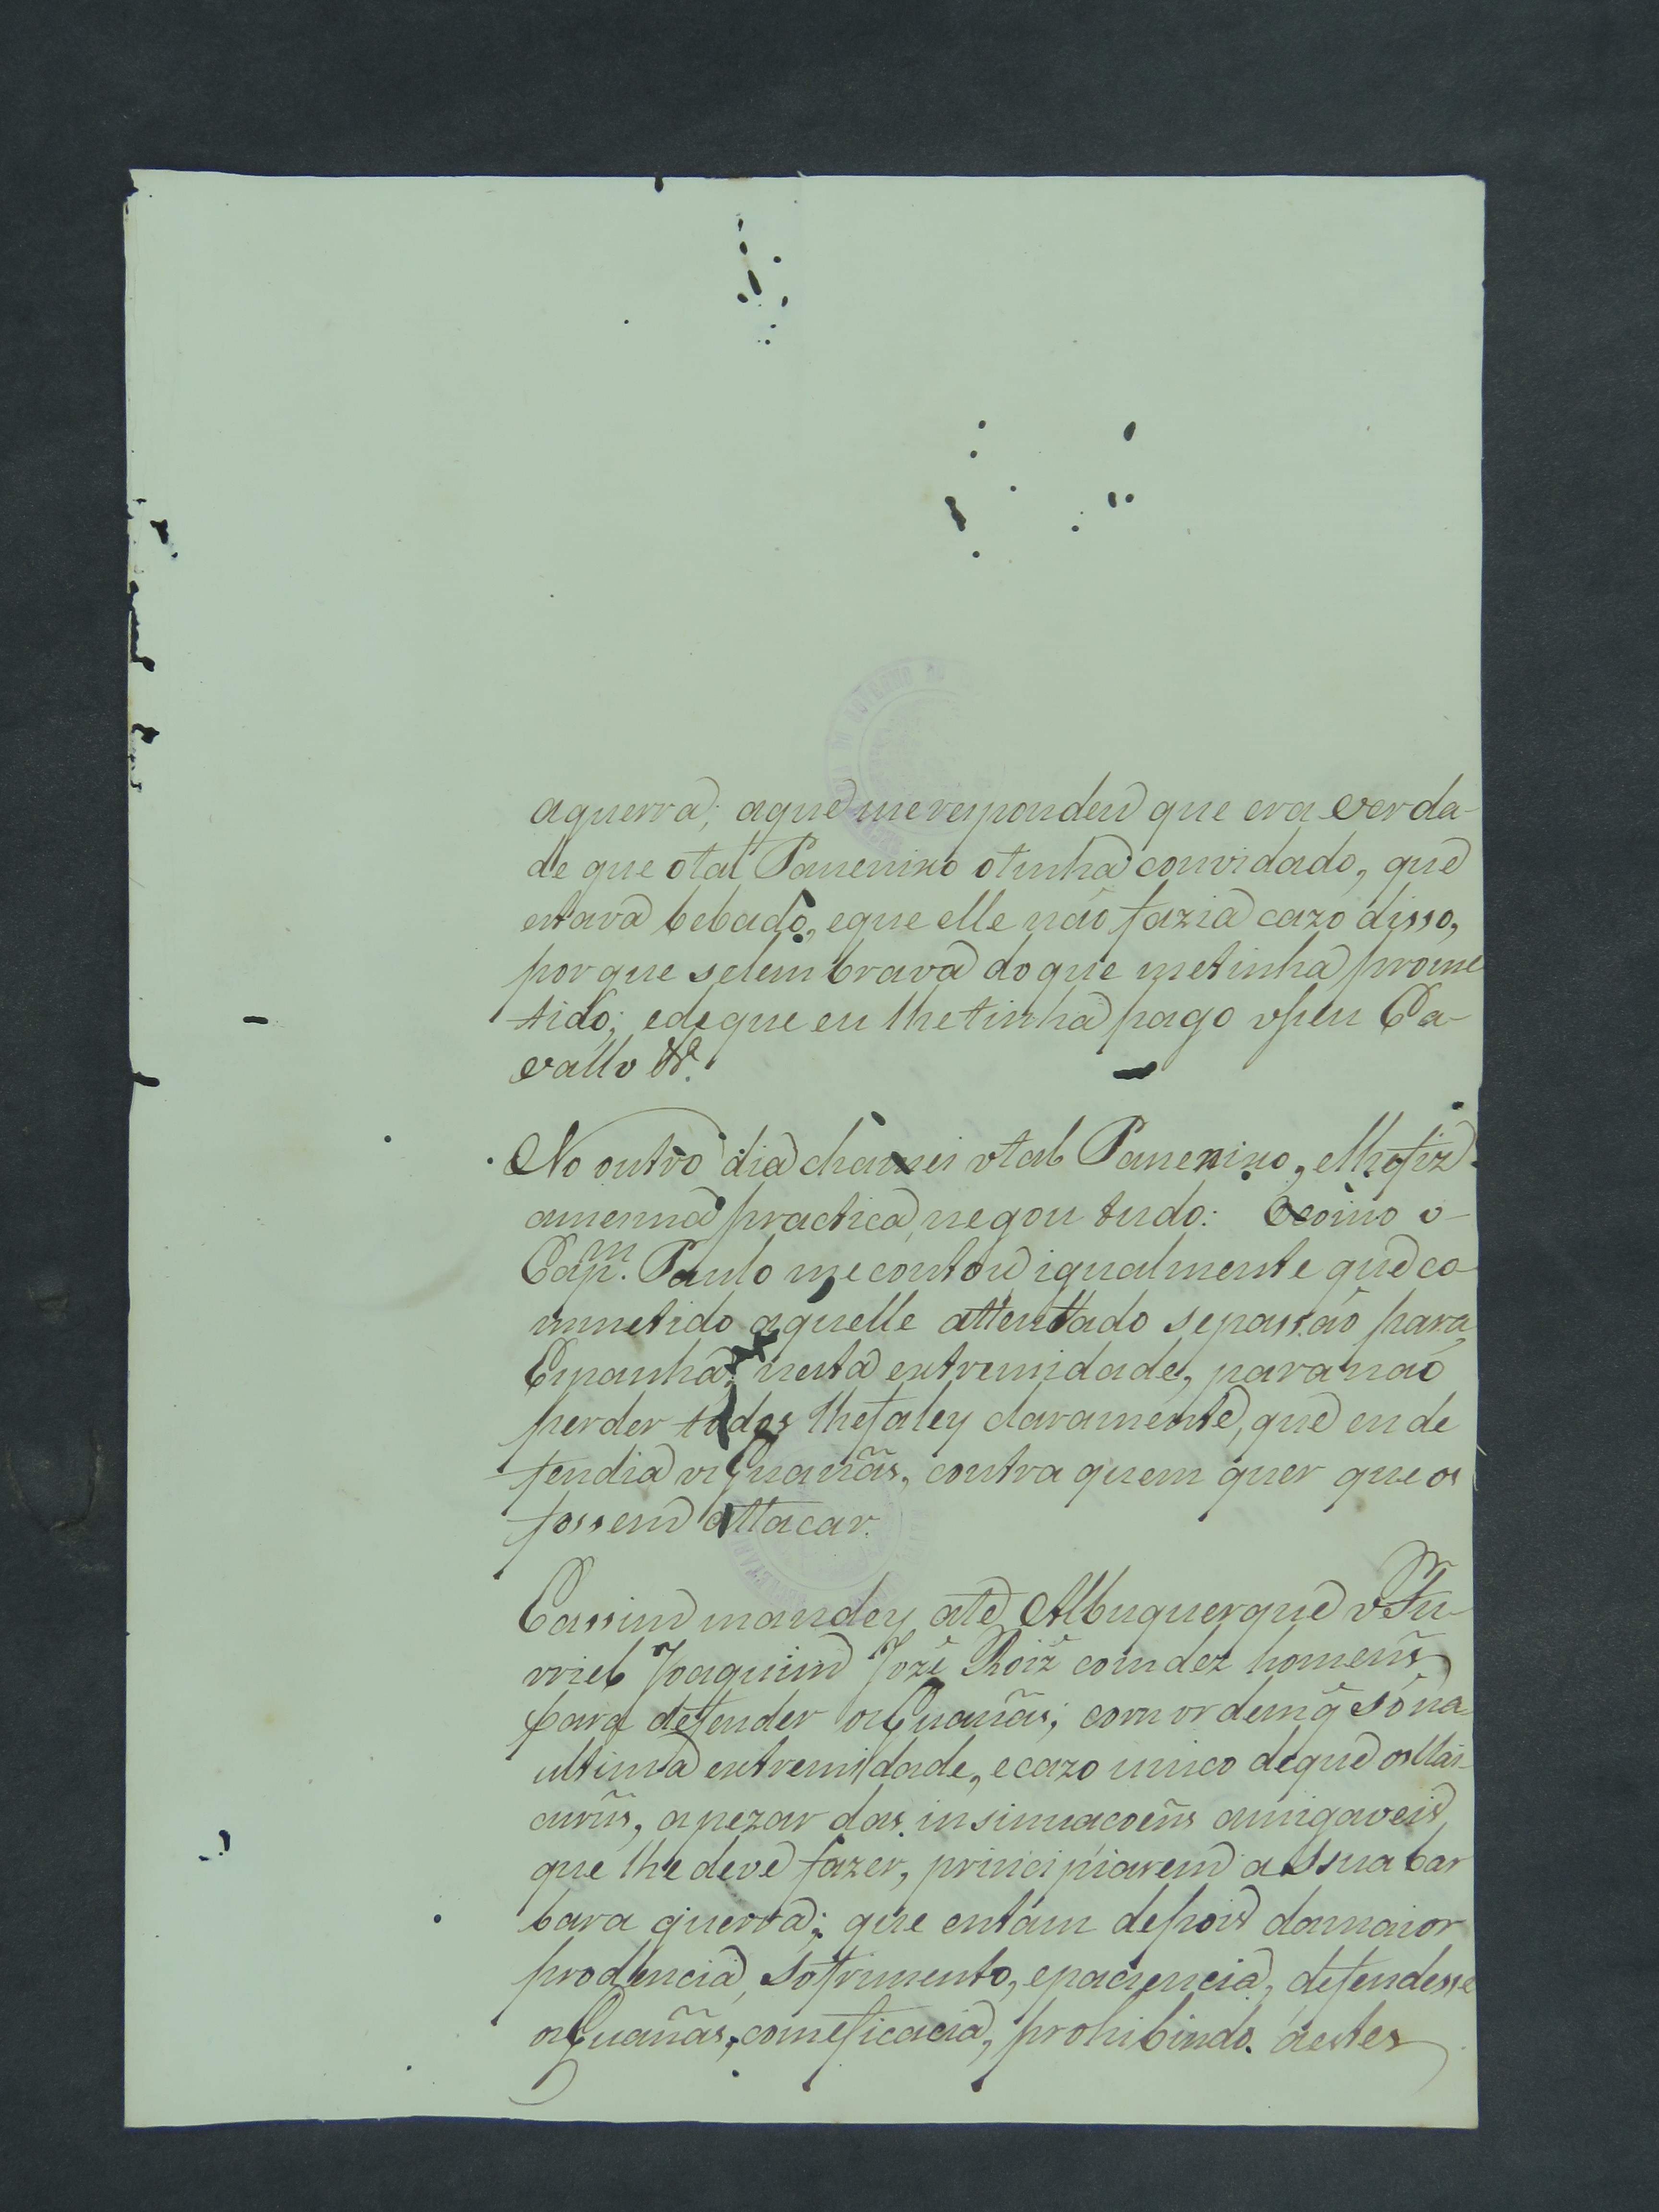 aguerra; aque me respondeu que era verda-
de que otal Panenixo otinha convidado, que
estava bebado, eque elle não fazia cazo disso,
porque selembrava doque metinha prome
tido; edeque eu lhetinha pago oseu Ca-
vallo &ª.
No outro dia chamei otal Panenixo, elhefiz
amesma practica, negou tudo: Ecomo o
Capᵐ. Paulo me contou igualmente que co
mmetido aquelle attentado sepassão para
Espanha; nesta extremidade, para não
perder todos lhefaley claramente, que eu de
fendia os Guanãs, contra quem quer que os
fossem attacar.
E assim mandey até Albuquerque o Fu-
rriel Joaquim Jozé Roiz̃ com dez homens
para defender os Guanãs; com ordem q̃ só na
ultima extremidade, e cazo unico deque os Uai-
curũs, apezar das insinuacoẽns amigaveis,
que lhe deve fazer, principiarem a Ssua bar
bara guerra; que entam depois damaior
prodencia, sofrimento, epaciencia, defendesse
os Guanãs, comeficacia, prohibindo aestes